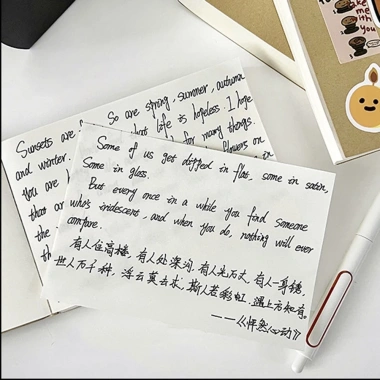 Sunsets are
So are spring, summer, autumn
and winter.
life is hopeless. I hope
you are
for many things.
flowers on
that ar
the
Some of us get dipped in flat, some in satin,
Some in gloss.
But every once in a while you find someone
who's iridescent, and when you do, nothing will ever
compare.
有人住高楼，有人处深沟，有人光万丈，有人一身锈，
世人万千种，浮云莫去求，斯人若彩虹，遇上方知有。
——《怦然心动》
take
me
with
you